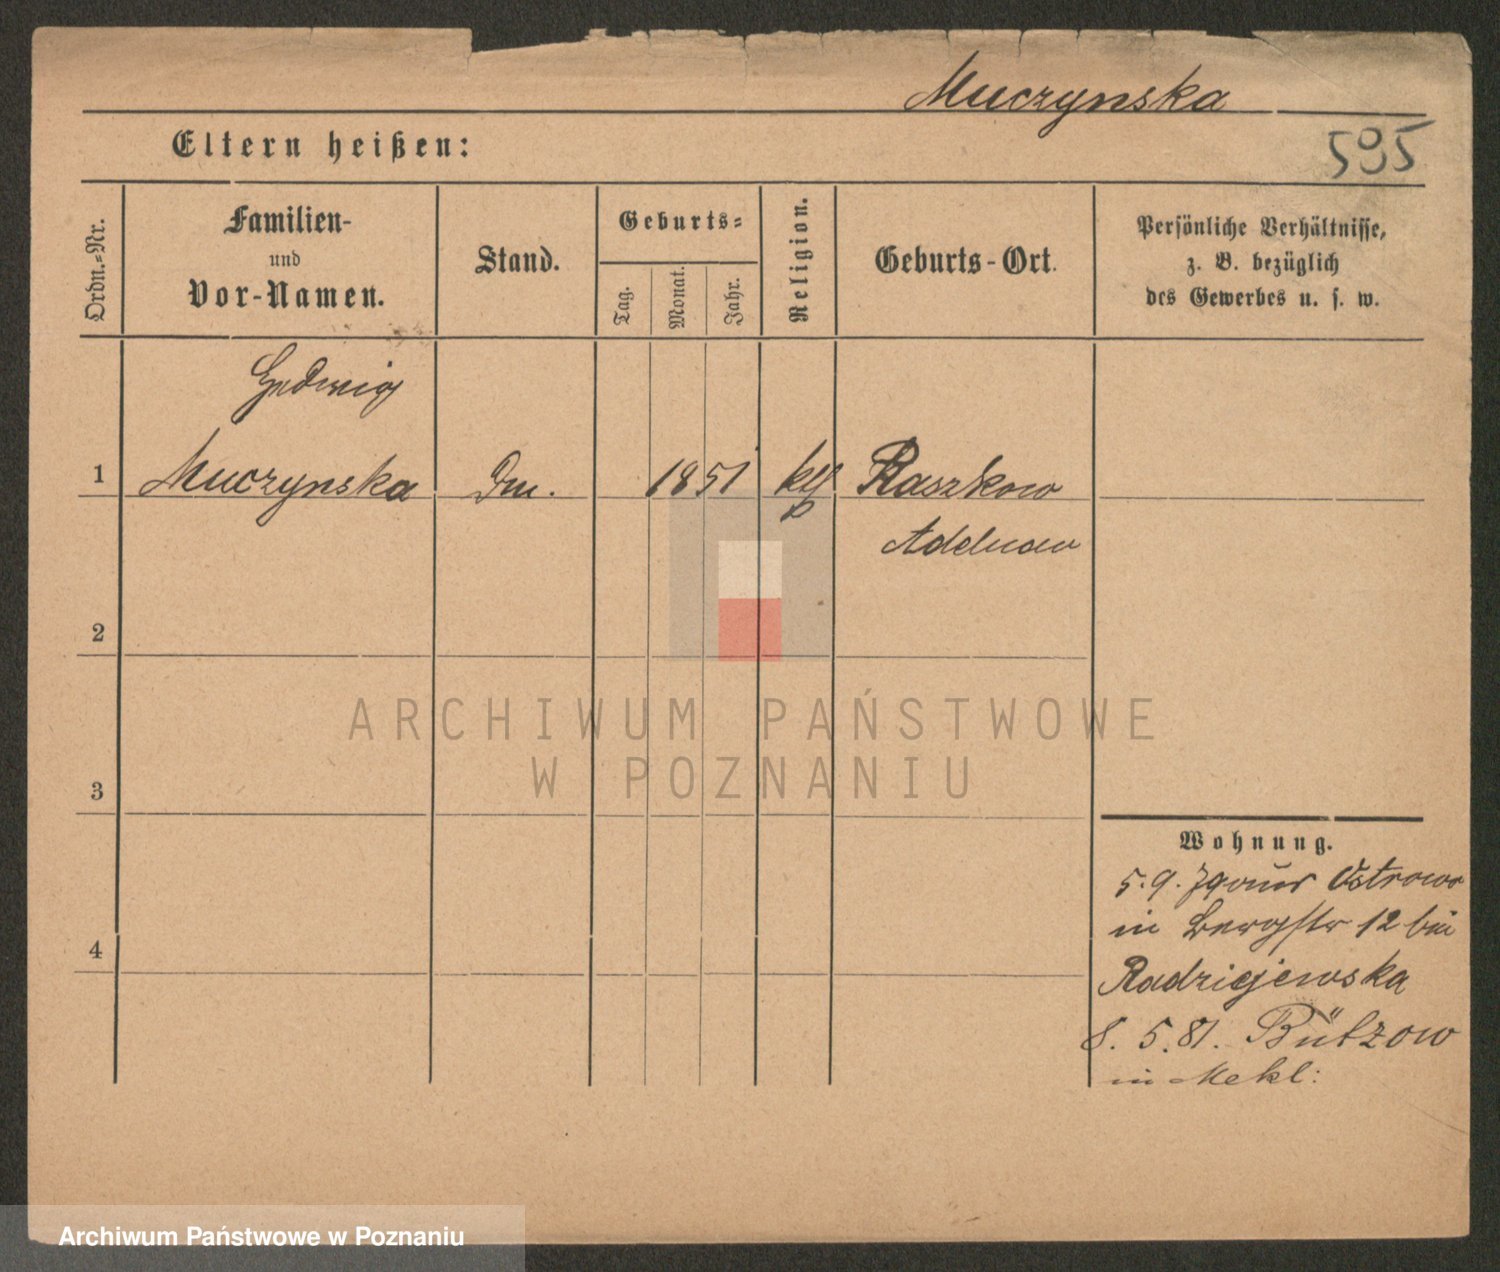 Muczynska
595
Eltern heißen:
Ordn.-Nr.
Familien-
und
Vor-Namen.
Stand.
Geburts-
Tag.
Monat.
Jahr.
Religion.
Geburts-Ort.
Persönliche Verhältnisse,
z. B. bezüglich
des Gewerbes u. s. w.
Hedwig
1 Muczynska 1851 kth Raszkow
Adelnau
2
3
4
ARCHIWUM PAŃSTWOWE
W POZNANIU
Wohnung.
5.9. Ostrowo
in Bergstr 12 bei
Radziejewska
8. 5. 81. Bützow
in Mekl:
Archiwum Państwowe w Poznaniu